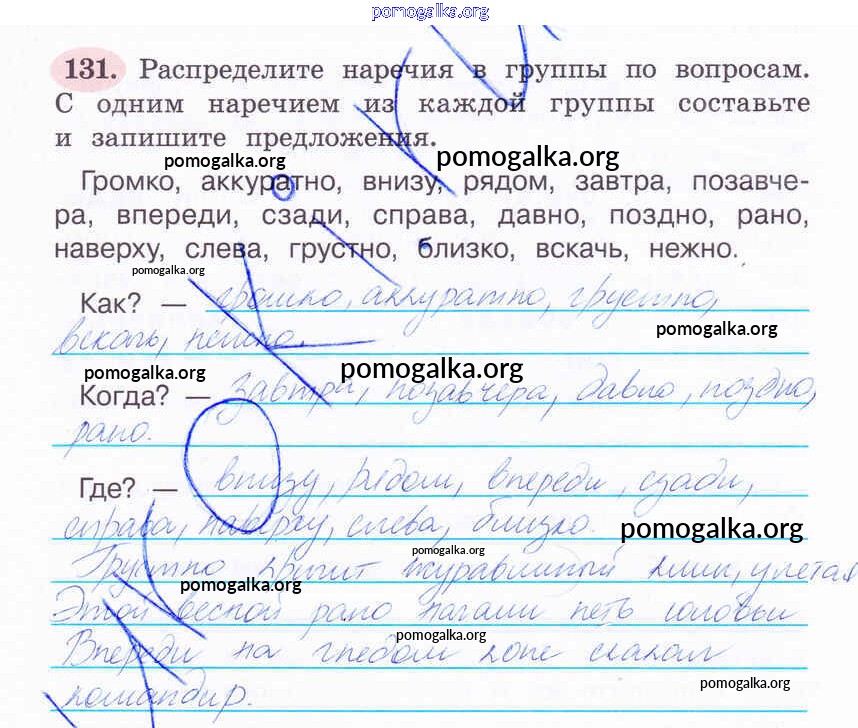 pomogalka.org
131. Распределите наречия в группы по вопросам.
С одним наречием из каждой группы составьте
и запишите предложения.
pomogalka.org
pomogalka.org
Громко, аккуратно, внизу, рядом, завтра, позавче-
ра, впереди, сзади, справа, давно, поздно, рано,
наверху, слева, грустно, близко, вскачь, нежно.
pomogalka.org
Как? — громко, аккуратно, грустно,
pomogalka.org
вскачь, нежно.
pomogalka.org
pomogalka.org
Когда? — завтра, позавчера, давно, поздно,
рано.
Где? — внизу, рядом, впереди, сзади,
справа, наверху, слева, близко.
pomogalka.org
pomogalka.org
Грустно кричит журавлиный клин, улетая
pomogalka.org
Этой весной рано начали петь соловьи
pomogalka.org
Впереди на гнедом коне скакал
pomogalka.org
командир.